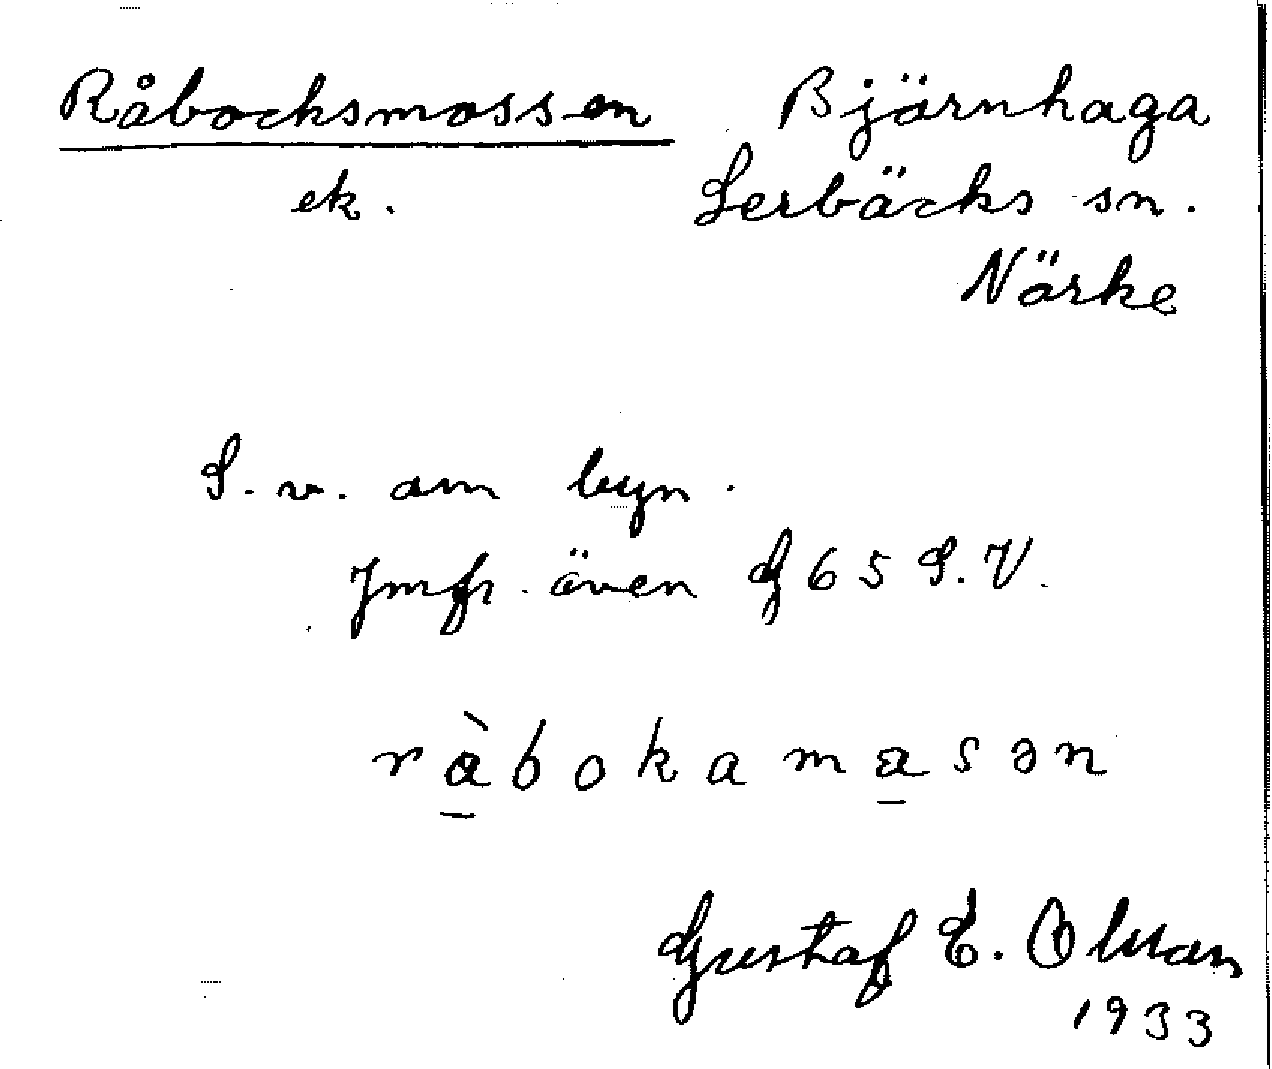 Råbocksmossen Bjärnhaga
ek. Lerbäcks sn.
Närke
S. v. om byn.
Jmfr. även G 65 S. V.
ràbokamasən
Gustaf E. Olsson
1933